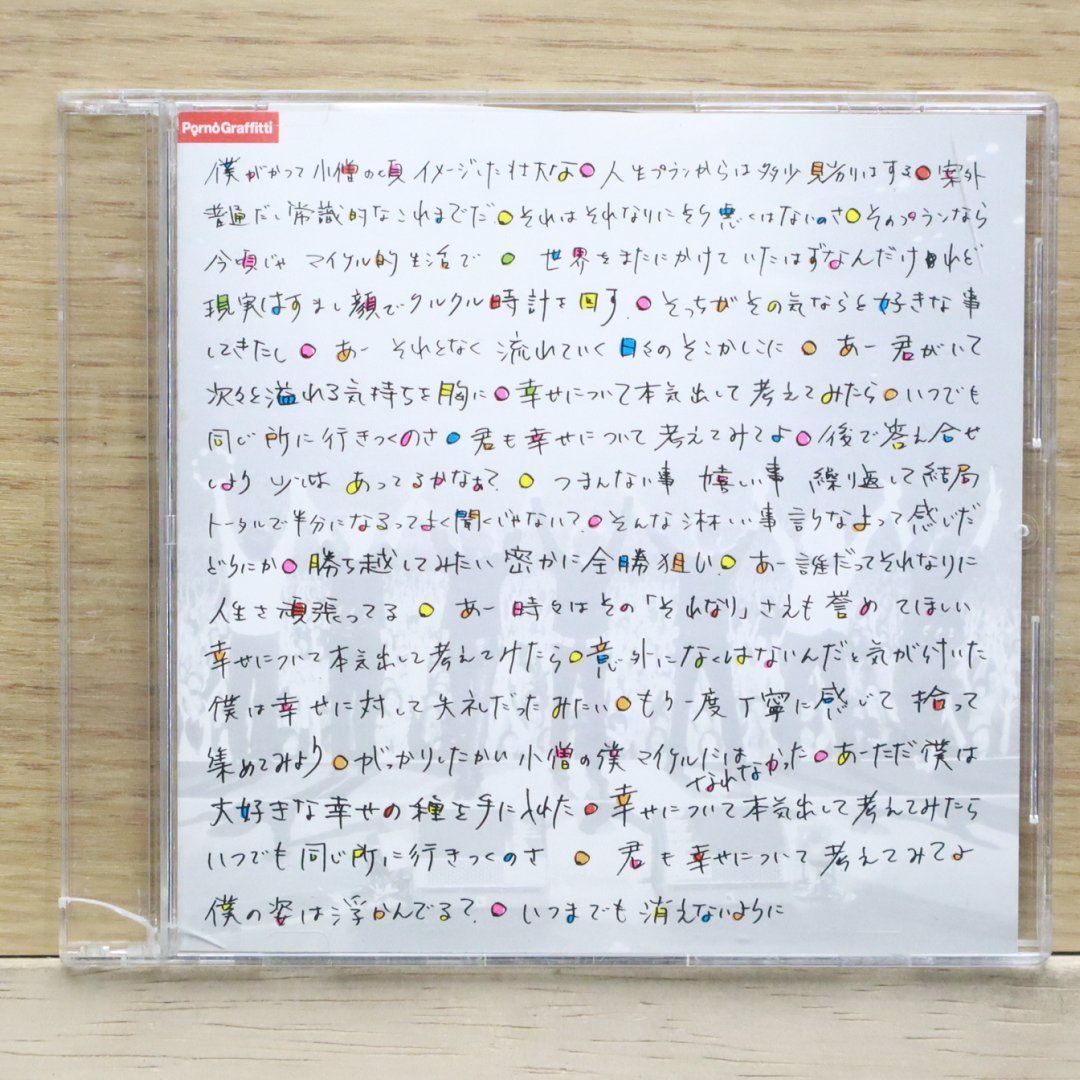 PornoGraffitti
僕がかつて小僧の頃 イメージした壮大な 人生プランからは多少見劣りはする 案外
普通だし常識的なこれまでだ それはそれなりにそう悪くはないのさ そのプランなら
今頃じゃ マイケル的生活で 世界をまたにかけていたはずなんだけれど
現実はすまし顔でクルクル時計を回す そっちがその気ならと好きな事
してきたし あー それとなく 流れていく 日々のそこかしこに あー 君がいて
次々と溢れる気持ちを胸に 幸せについて本気出して考えてみたら いつでも
同じ所に行きつくのさ 君も幸せについて考えてみてよ 後で答え合せ
しよう 少しは あってるかなぁ? つまんない事 嬉しい事 繰り返して結局
トータルで半分になるってよく聞くじゃない? そんな淋しい事言うなよって感じだ
どうにか 勝ち越してみたい 密かに全勝狙い あー 誰だってそれなりに
人生を頑張ってる あー 時々はその「それなり」さえも誉めてほしい
幸せについて本気出して考えてみたら 意外になくはないんだと気が付いた
僕は幸せに対して失礼だったみたい もう一度丁寧に感じて 拾って
集めてみよう がっかりしたかい 小僧の僕 マイケルには なれなかった あーただ僕は
大好きな幸せの種を手に入れた 幸せについて本気出して考えてみたら
いつでも同じ所に行きつくのさ 君も幸せについて考えてみてよ
僕の姿は浮かんでる? いつまでも 消えないように